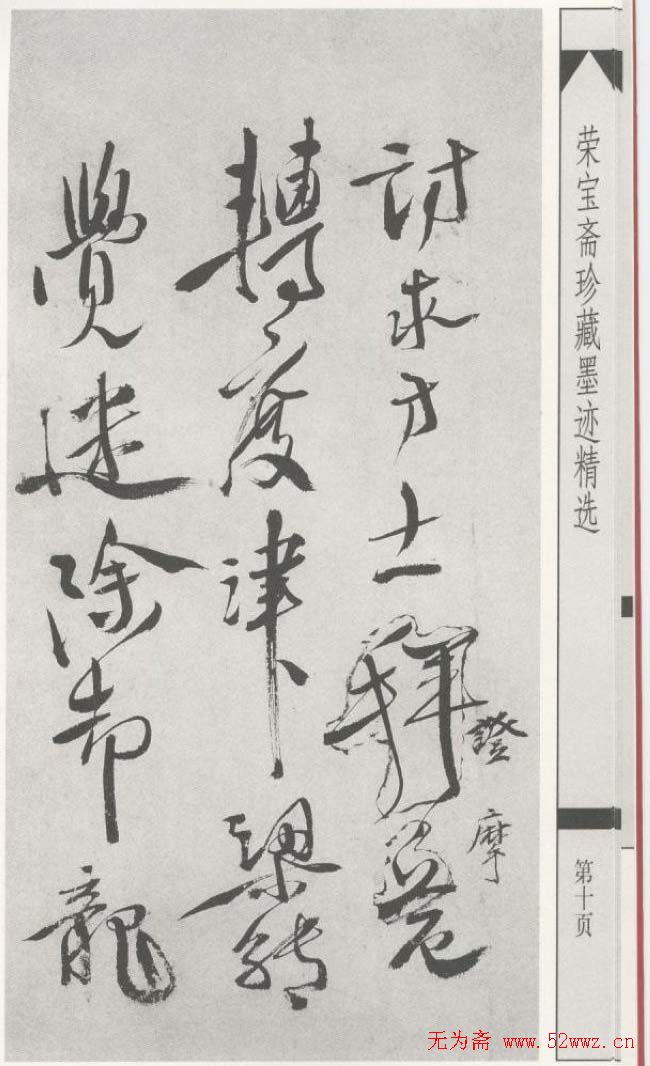 荣宝斋珍藏墨迹精选
第十页
訪求方士
證
摩
轉度津梁
覺迷除却龍
无为斋 www.52wwz.cn